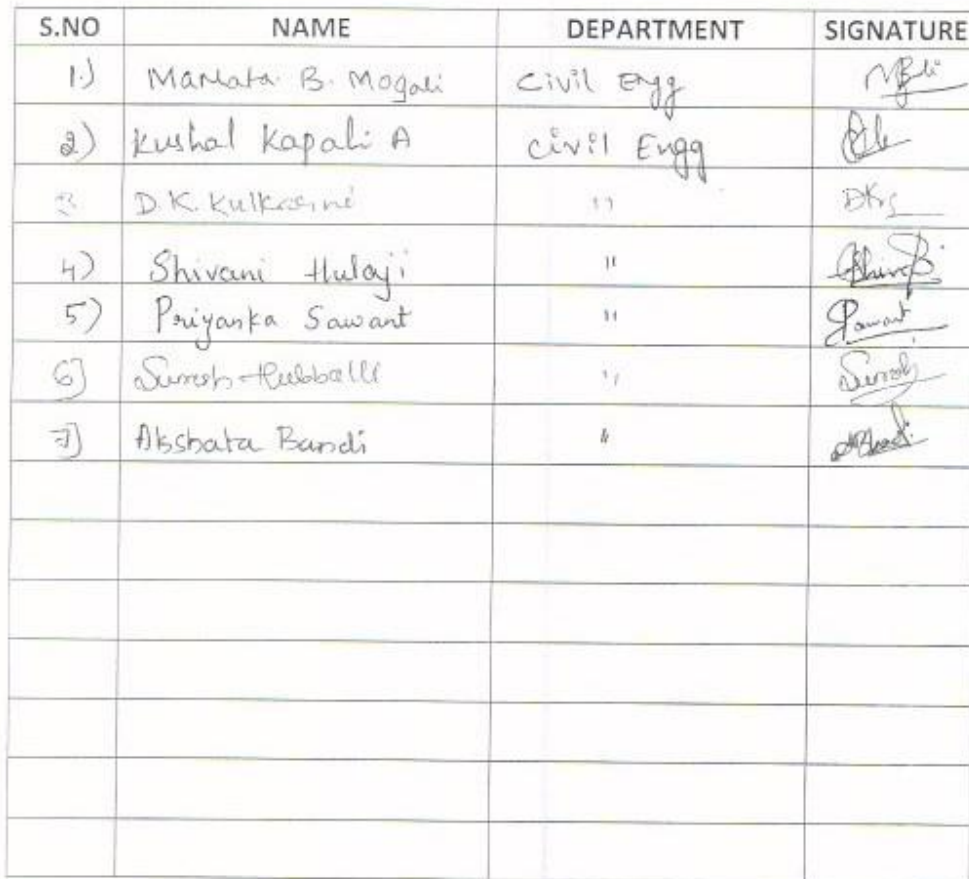 S.NO NAME DEPARTMENT SIGNATURE
1.) Mamata B. Mogali Civil Engg
2) Kushal Kapali A Civil Engg
3 D.K. Kulkarni "
4) Shivani Hulaji "
5) Priyanka Sawant " Sawant
6] Suresh Hubballi " Suresh
7] Akshata Bandi "